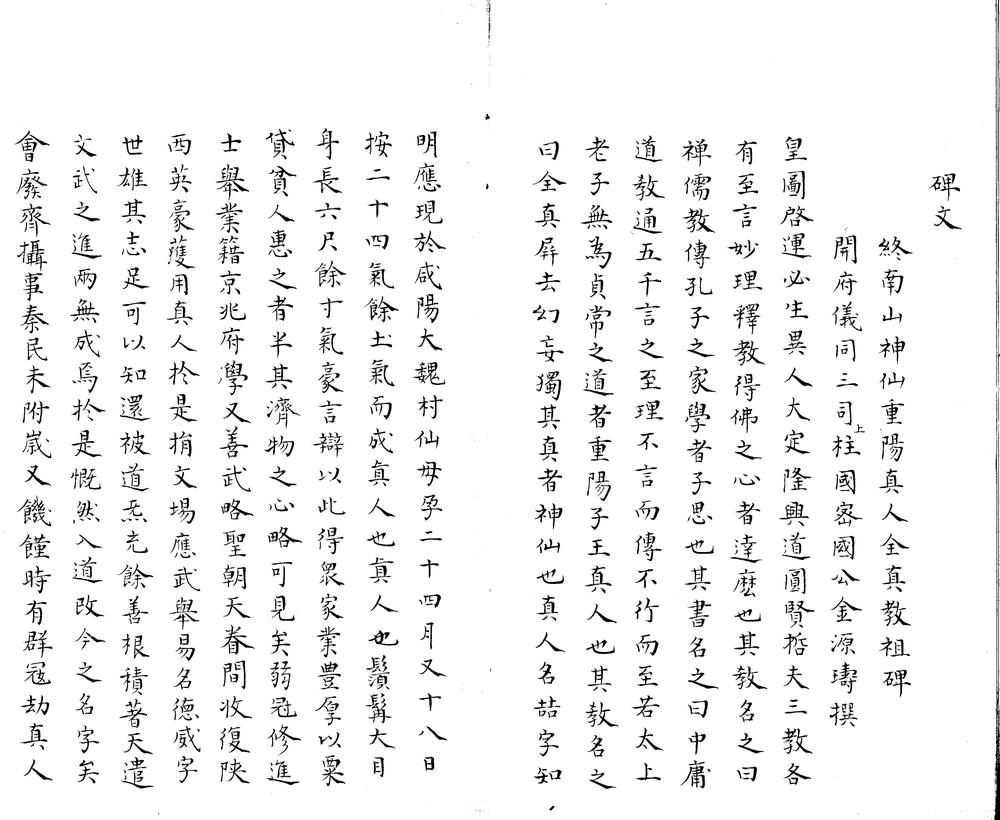 碑文
終南山神仙重陽真人全真教祖碑
開府儀同三司上柱國密國公金源璹撰
皇圖啓運必生異人大定隆興道圓賢哲夫三教各
有至言妙理釋教得佛之心者達麼也其教名之曰
禅儒教傳孔子之家學者子思也其書名之曰中庸
道教通五千言之至理不言而傳不行而至若太上
老子無為貞常之道者重陽子王真人也其教名之
曰全真屏去幻妄獨其真者神仙也真人名喆字知
明應現於咸陽大魏村仙母孕二十四月又十八日
按二十四氣餘土氣而成真人也真人也鬚髯大目
身長六尺餘寸氣豪言辯以此得衆家業豊厚以粟
貸貧人惠之者半其濟物之心略可見矣弱冠修進
士舉業籍京兆府學又善武略聖朝天眷間收復陝
西英豪獲用真人於是捐文場應武舉易名德威字
世雄其志足可以知還被道炁充餘善根積著天遣
文武之進兩無成焉於是慨然入道改今之名字矣
會廢齊攝事秦民未附嵗又饑饉時有群冦劫真人